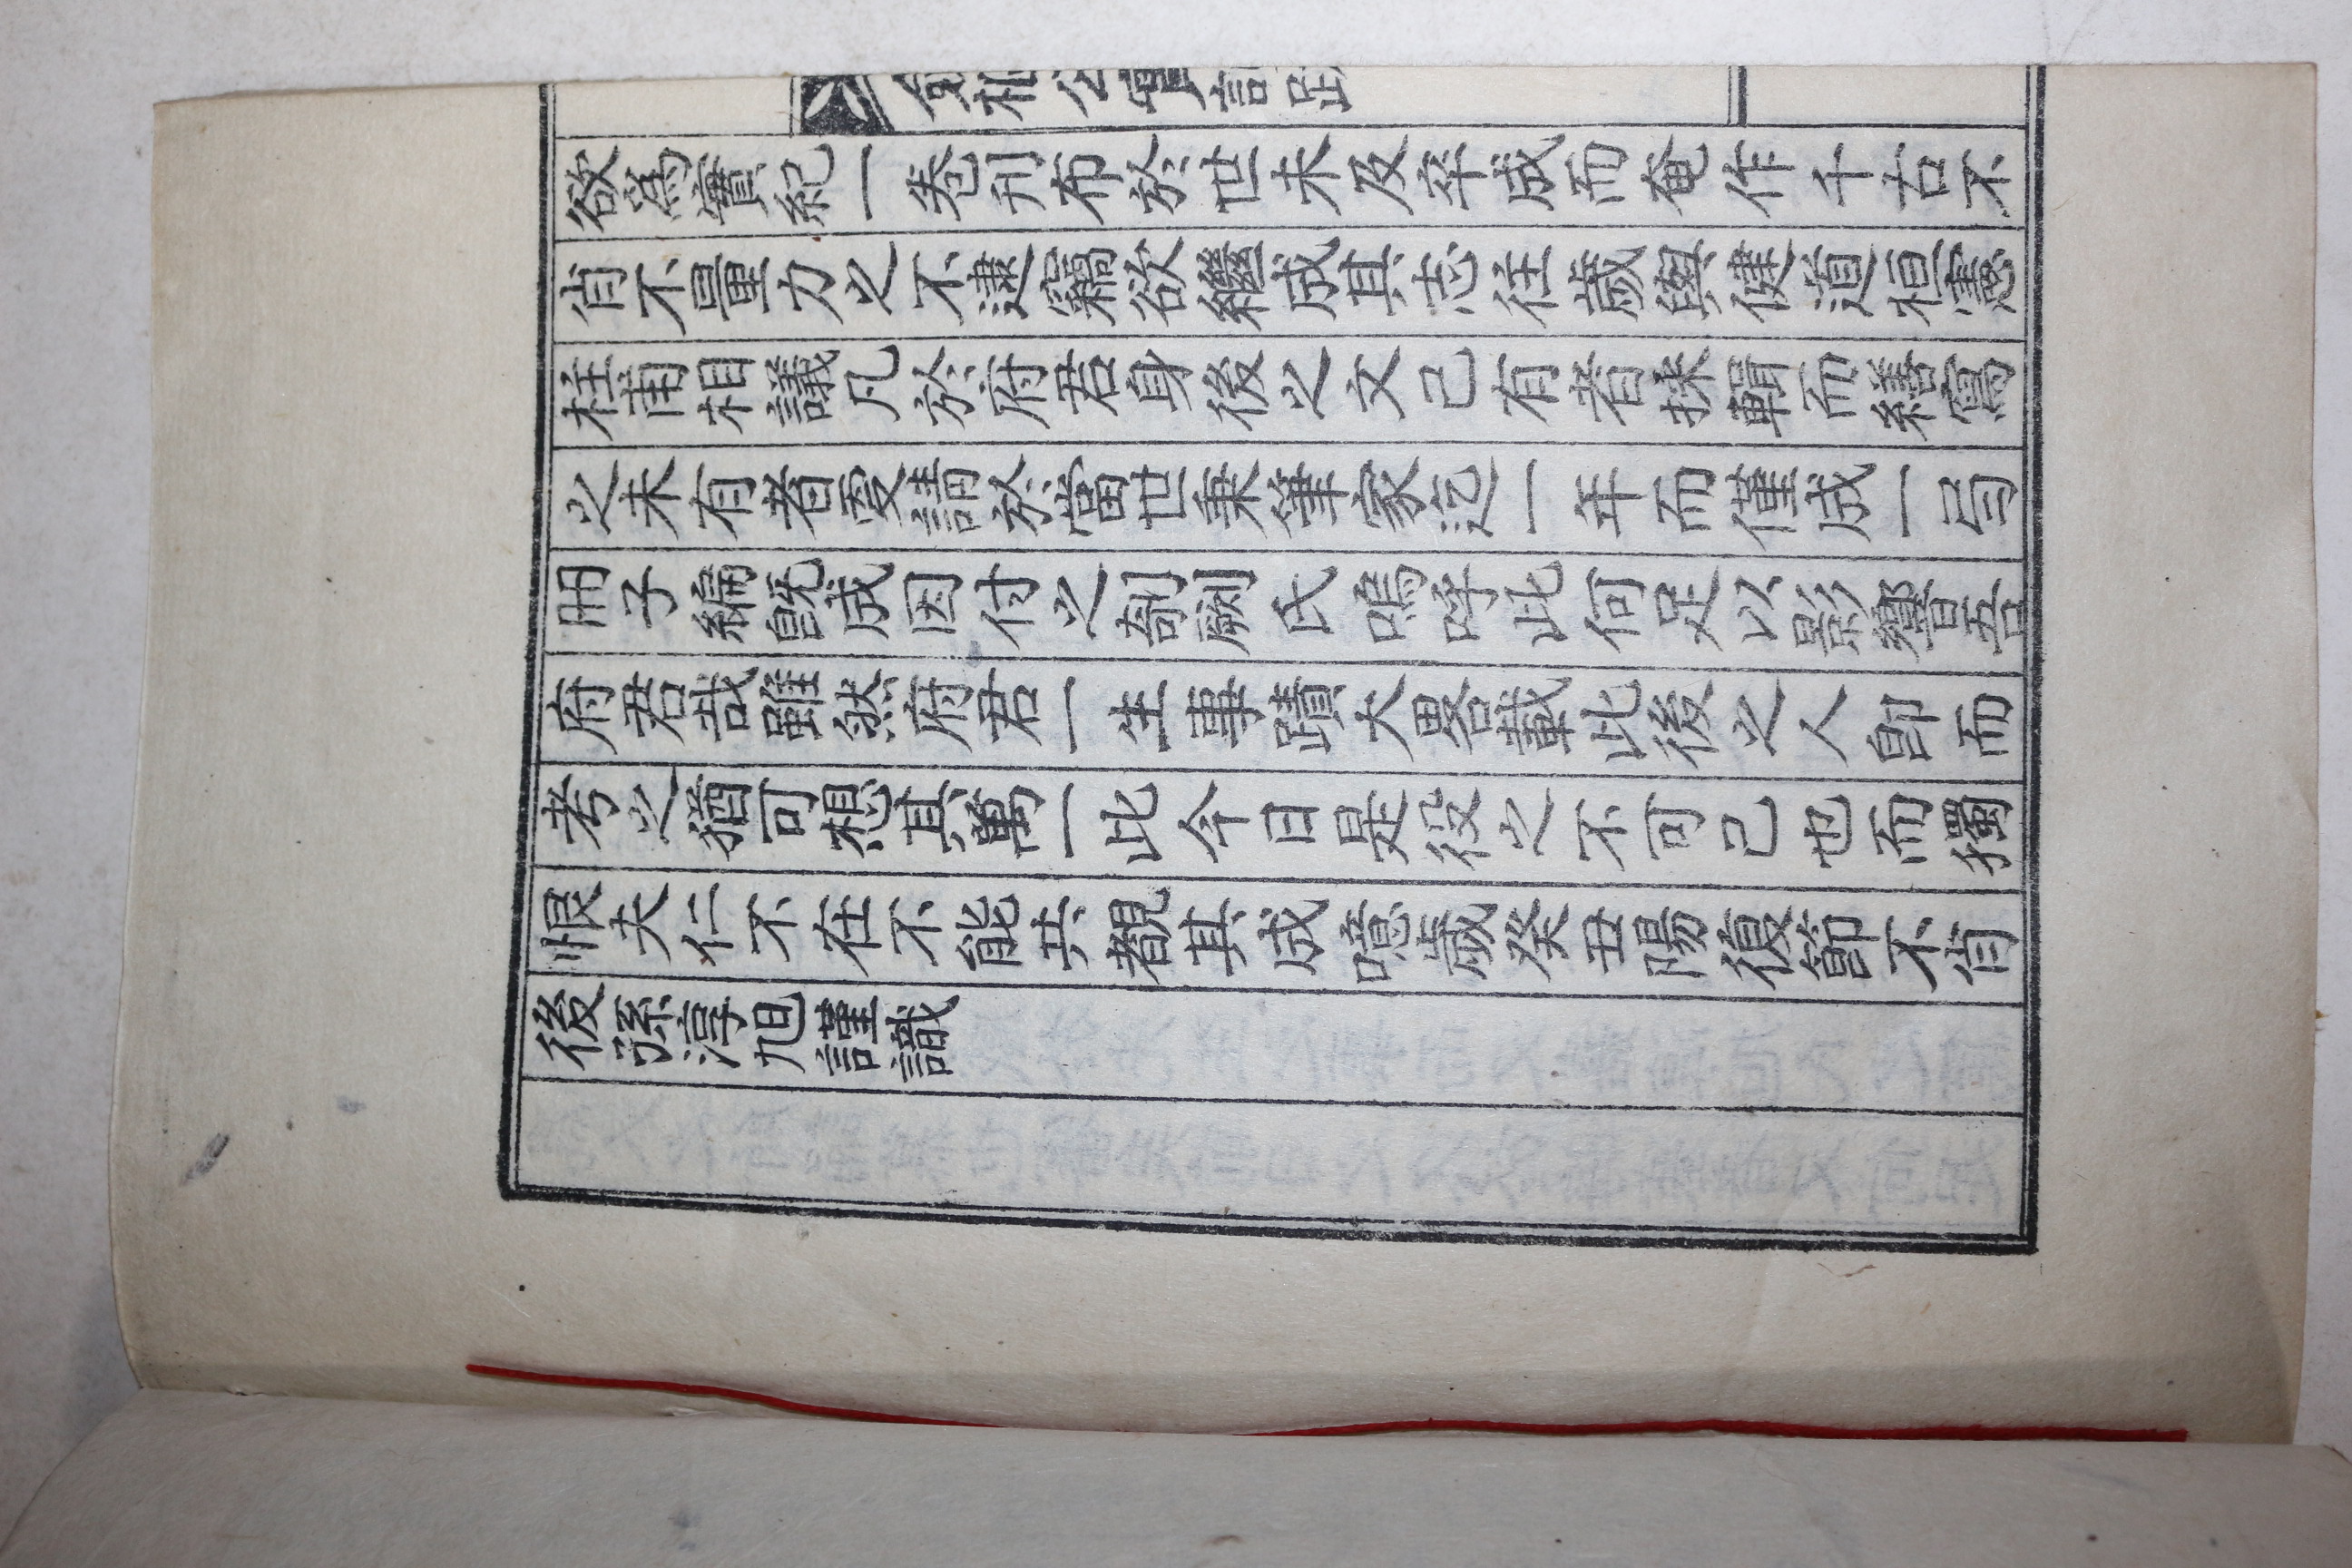 公實記跋
欲爲實紀一卷刊布於世未及卒成而奄作千古不
肖不量力之不逮竊欲繼成其志往歲與健道桓憲
柱甫相議凡於府君身後之文己有者採輯而繕寫
之未有者更請於當世秉筆家迄一年而僅成一弓
冊子編旣成因付之剞劂氏嗚呼此何足以影響吾
府君哉雖然府君一生事蹟大畧載此後之人卽而
考之猶可想其萬一此今日是役之不可己也而獨
恨夫仁不在不能共覩其成噫歲癸丑陽復節不肖
後孫淳旭謹識